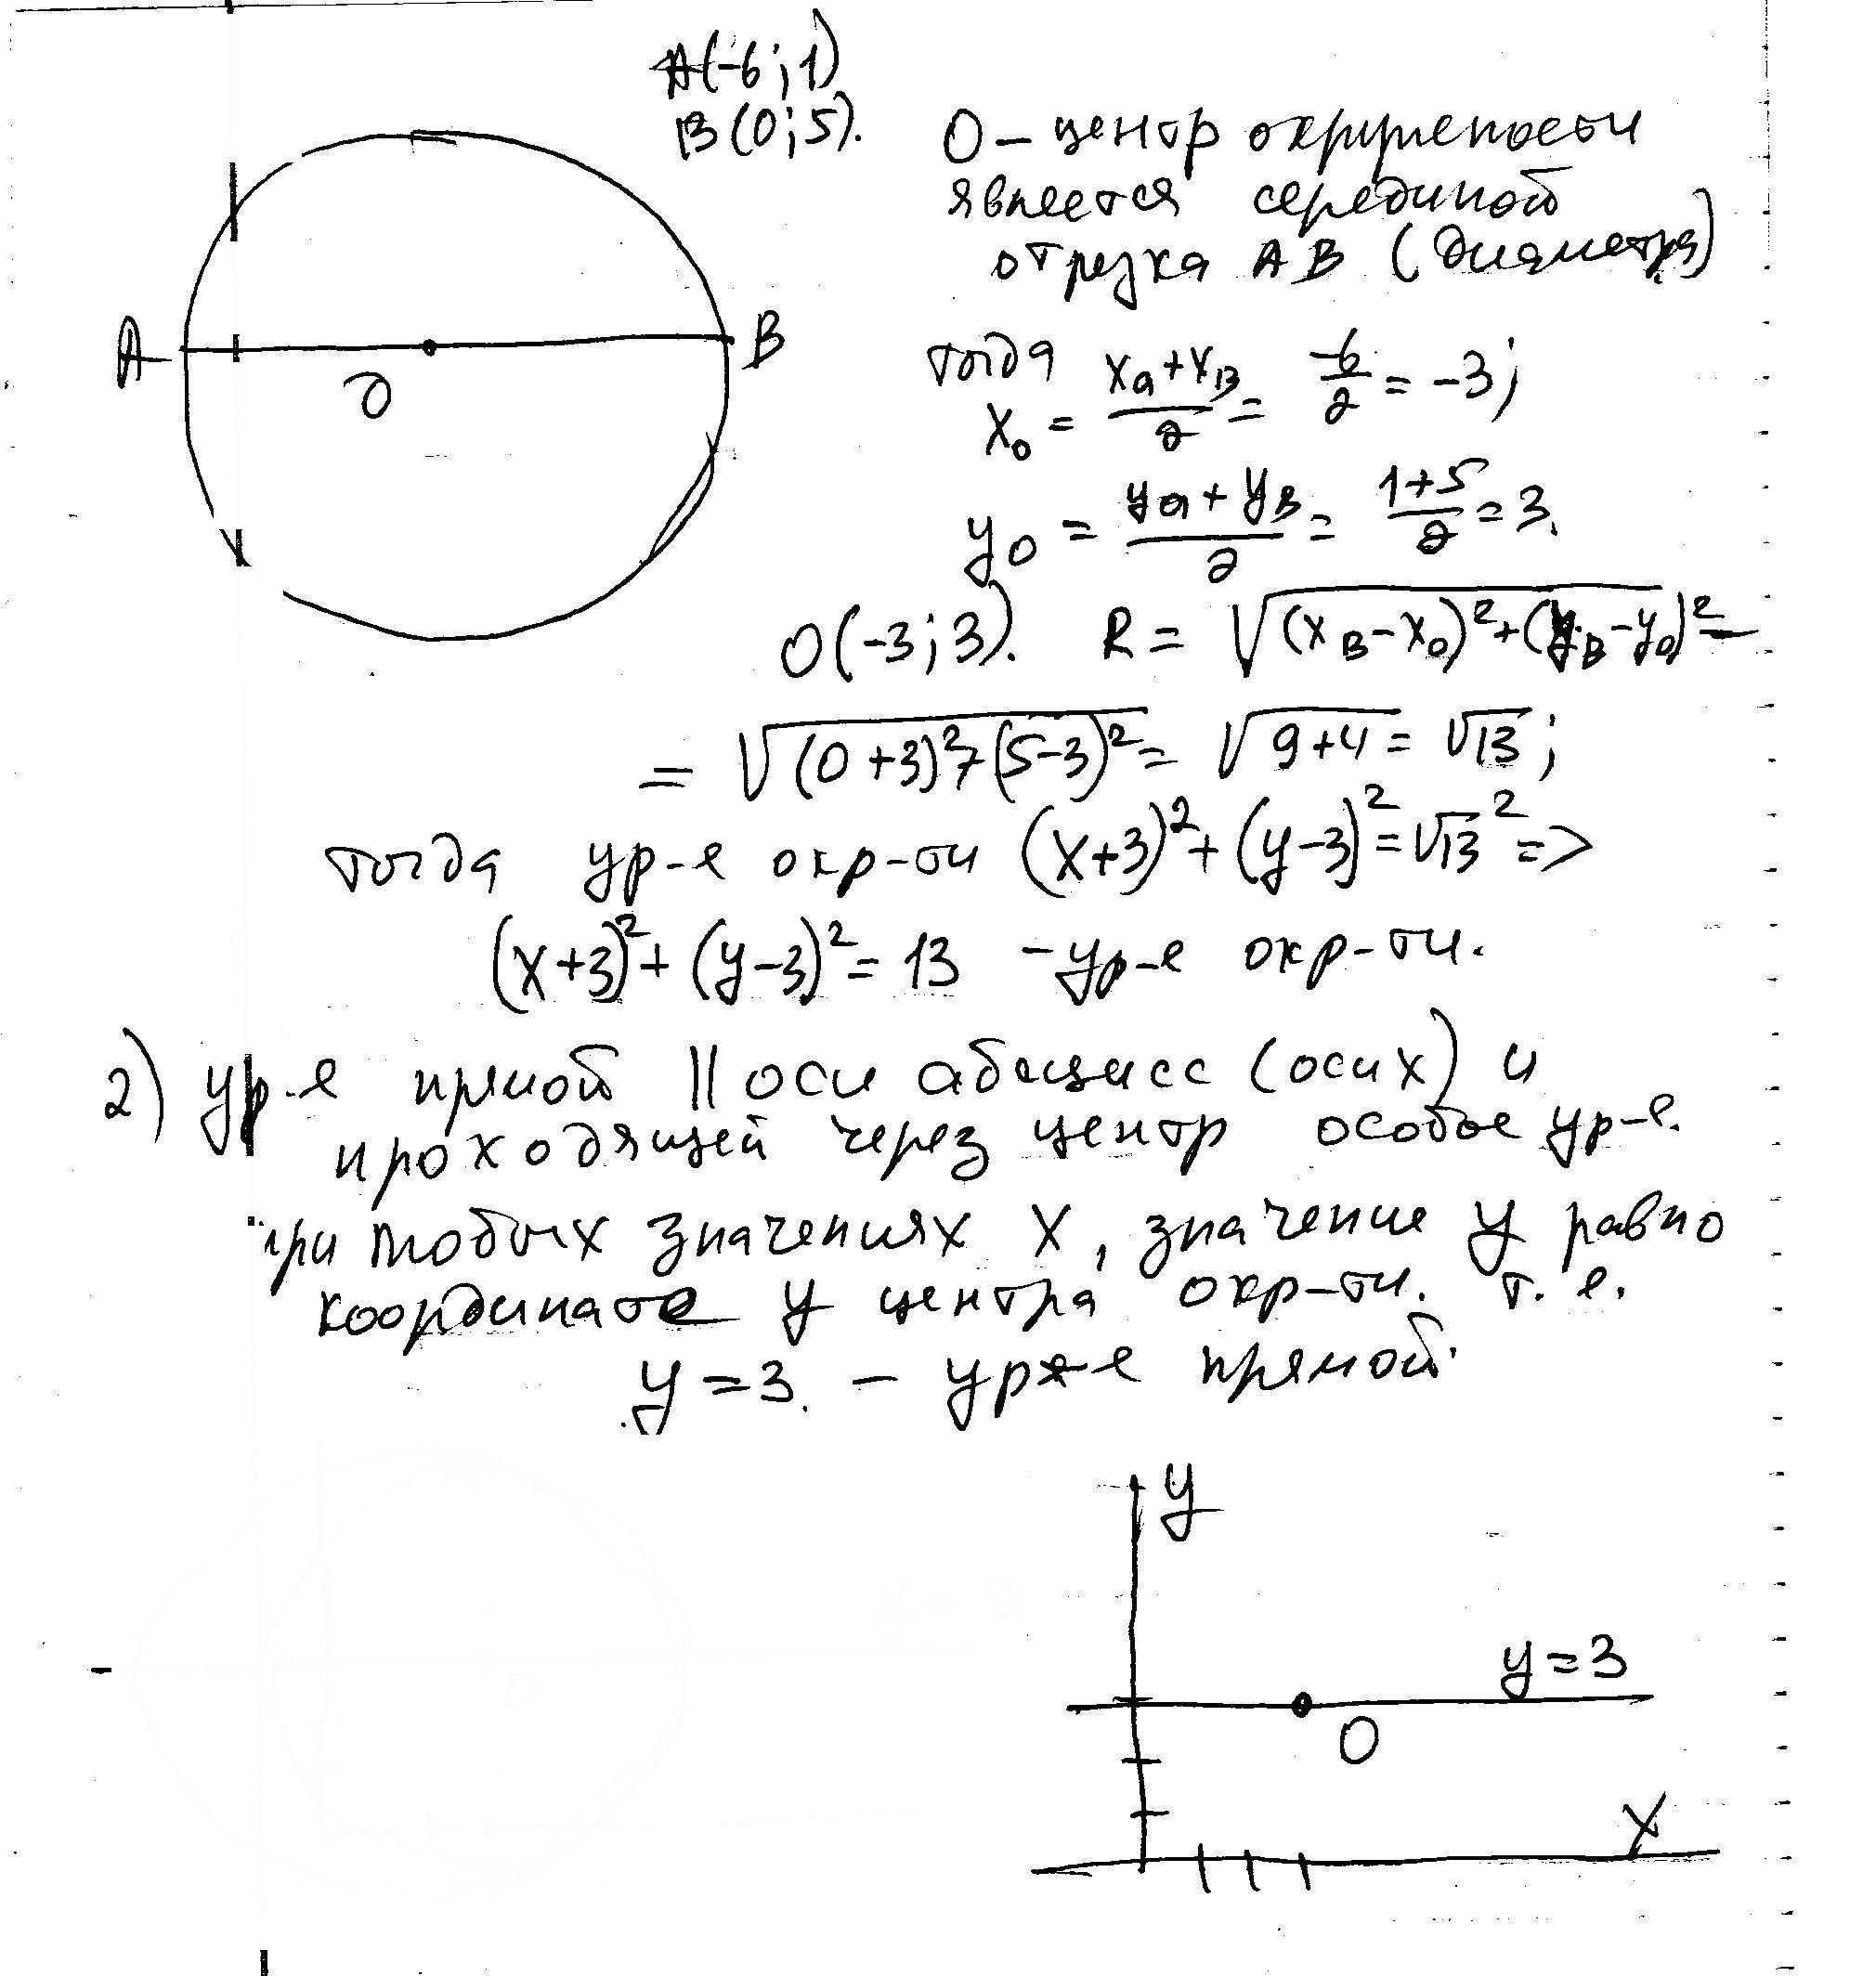 A(-6;1)
B(0;5).
О – центр окружности
является серединой
отрезка AB (диаметра)
A B
O
тогда x₀ = (xₐ+x_B)/2 = -6/2 = -3;
y₀ = (yₐ+y_B)/2 = (1+5)/2 = 3.
O(-3;3). R = √((x_B-x₀)²+(y_B-y₀)²) =
= √((0+3)²+(5-3)²) = √(9+4) = √13;
тогда ур-е окр-ти (x+3)²+(y-3)²=√13² =>
(x+3)²+(y-3)²=13 – ур-е окр-ти.
2) ур-е прямой || оси абсцисс (оси x) и
проходящей через центр особое ур-е.
при любых значениях x, значение y равно
координате y центра окр-ти. т.е.
y=3. – ур-е прямой
y
y=3
O
x